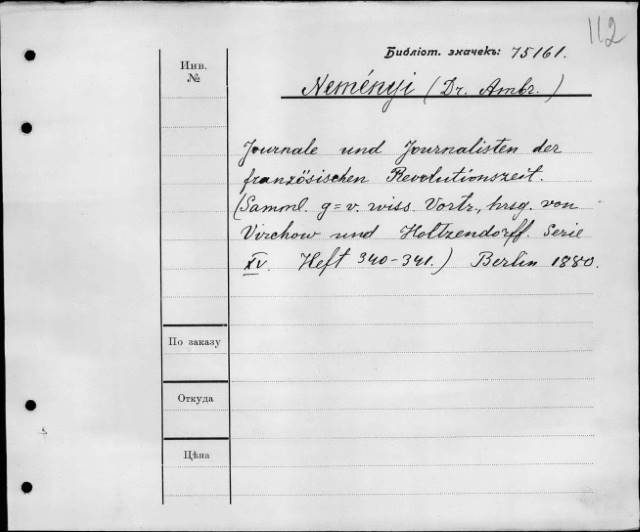 112
Библіот. значекъ: 75161.
Инв.
№
Neményi (Dr. Ambr.)
Journale und Journalisten der
französischen Revolutionszeit.
(Samml. g=v. wiss. Vortr., hrsg. von
Virchow und Holtzendorff. Serie
XV. Heft 340-341.) Berlin 1880.
По заказу
Откуда
Цѣна